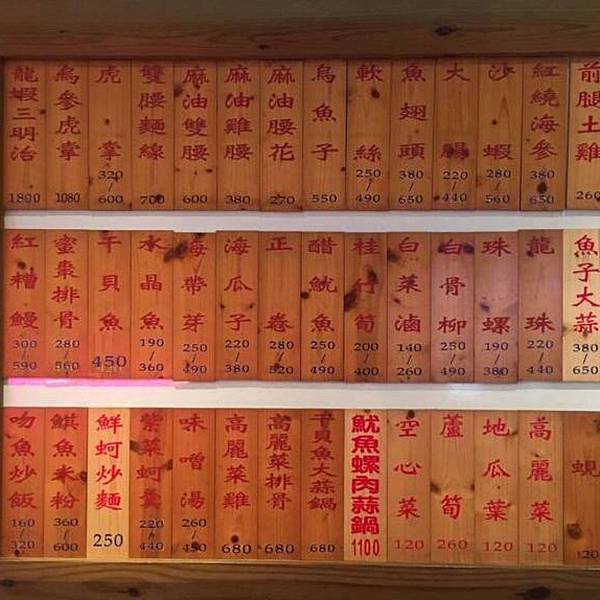 龍蝦三明治 1800
烏參虎掌 1080
虎掌 320/600
雙腰麵線 700
麻油雙腰 600
麻油雞腰 380
麻油腰花 270
烏魚子 550
軟絲 250/490
魚翅頭 380/650
大腸 220/440
沙蝦 280/560
紅繞海參 380/650
前腿土雞 260
紅糟鰻 300/590
蜜棗排骨 280/560
干貝魚 450
水晶魚 190/360
海帶芽 250/490
海瓜子 220/380
正卷 280/520
醋魷魚 250/490
桂竹筍 200/400
白菜滷 140/260
白骨柳 250/490
珠螺 190/380
龍珠 220/440
魚子大蒜 380/650
吻魚炒飯 160/320
鯕魚米粉 360/600
鮮蚵炒麵 250
紫菜蚵羹 220/440
味噌湯 260/450
高麗菜雞 680
高麗菜排骨 680
干貝魚大蒜鍋 680
魷魚螺肉蒜鍋 1100
空心菜 120
蘆筍 260
地瓜葉 120
高麗菜 120